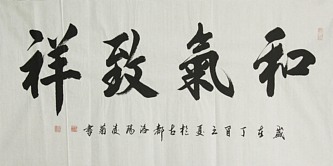 和氣致祥
歲在丁酉之夏於古都洛陽凌菊書